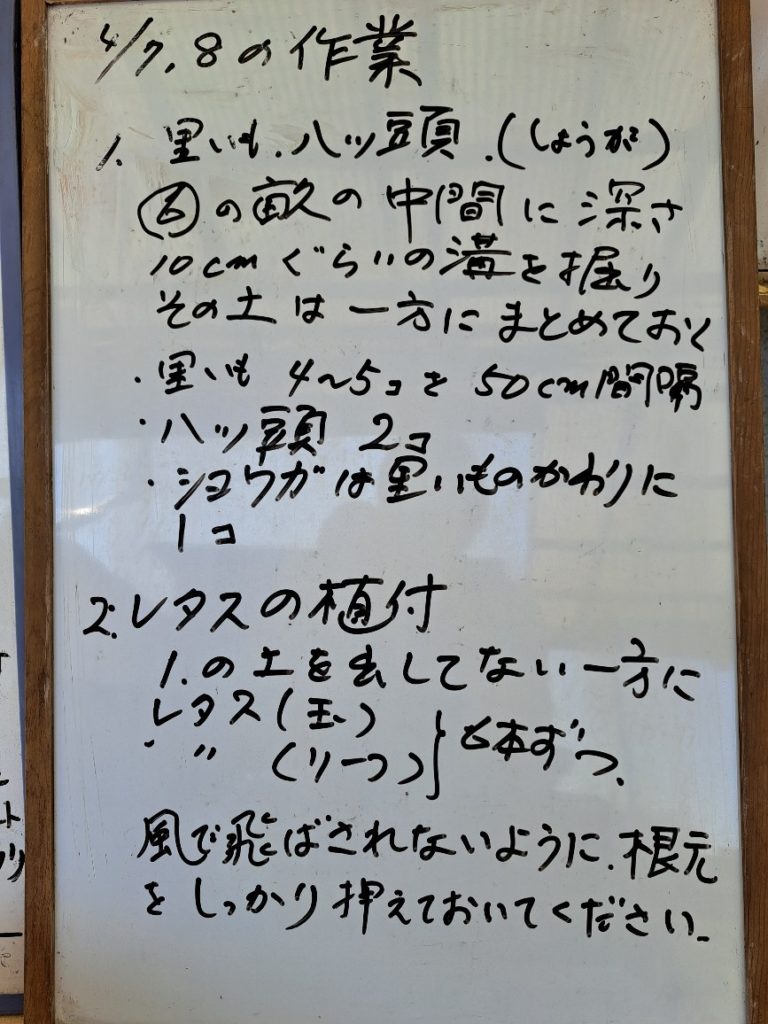 4/7,8の作業
1. 里いも.八ッ頭.(しょうが)
⑥の畝の中間に深さ
10cmぐらいの溝を掘り
その土は一方にまとめておく
・里いも 4~5コを50cm間隔
・八ッ頭 2コ
・ショウガは里いものかわりに
1コ
2.レタスの植付
1.の土を出してない一方に
レタス(玉)
・〃 (リーフ)}6本ずつ.
風で飛ばされないように.根元
をしっかり押えておいてください.
ト